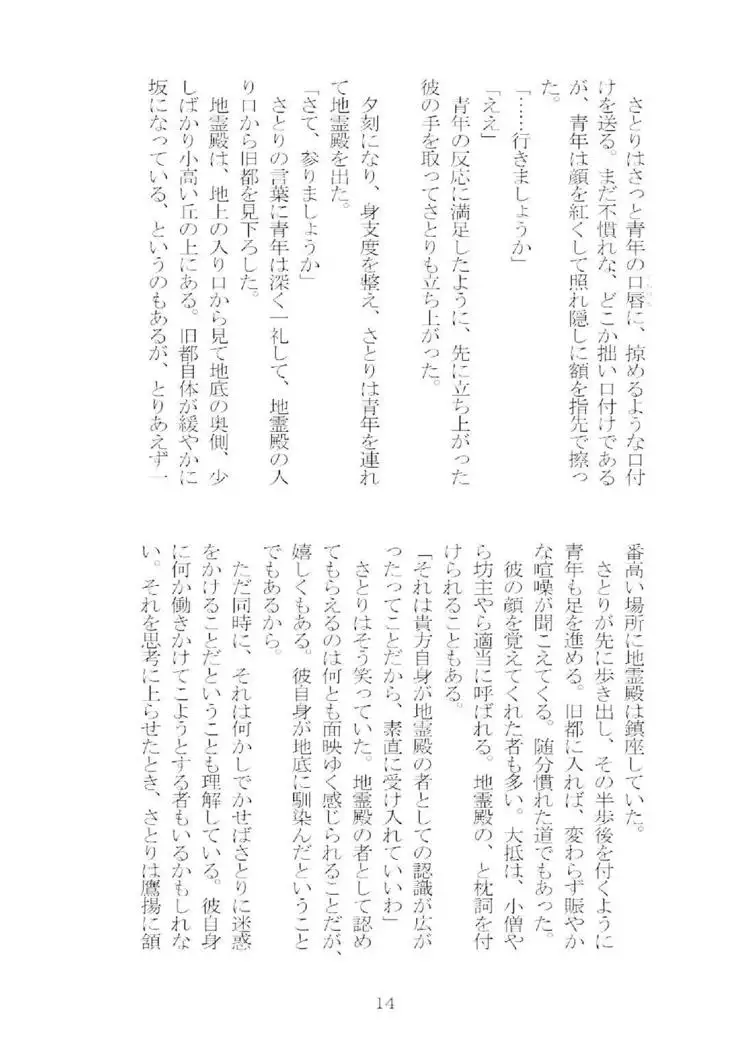 さとりはさっと青年の口唇に、掠めるような口付
けを送る。まだ不慣れな、どこか拙い口付けである
が、青年は顔を紅くして照れ隠しに額を指先で擦っ
た。
「……行きましょうか」
「ええ」
青年の反応に満足したように、先に立ち上がった
彼の手を取ってさとりも立ち上がった。
夕刻になり、身支度を整え、さとりは青年を連れ
て地霊殿を出た。
「さて、参りましょうか」
さとりの言葉に青年は深く一礼して、地霊殿の入
り口から旧都を見下ろした。
地霊殿は、地上の入り口から見て地底の奥側、少
しばかり小高い丘の上にある。旧都自体が緩やかに
坂になっている、というのもあるが、とりあえず一
番高い場所に地霊殿は鎮座していた。
さとりが先に歩き出し、その半歩後を付くように
青年も足を進める。旧都に入れば、変わらず賑やか
な喧噪が聞こえてくる。随分慣れた道でもあった。
彼の顔を覚えてくれた者も多い。大抵は、小僧や
ら坊主やら適当に呼ばれる。地霊殿の、と枕詞を付
けられることもある。
「それは貴方自身が地霊殿の者としての認識が広が
ったってことだから、素直に受け入れていいわ」
さとりはそう笑っていた。地霊殿の者として認め
てもらえるのは何とも面映ゆく感じられることだが、
嬉しくもある。彼自身が地底に馴染んだということ
でもあるから。
ただ同時に、それは何かしでかせばさとりに迷惑
をかけることだということも理解している。彼自身
に何か働きかけてこようとする者もいるかもしれな
い。それを思考に上らせたとき、さとりは鷹揚に頷
14